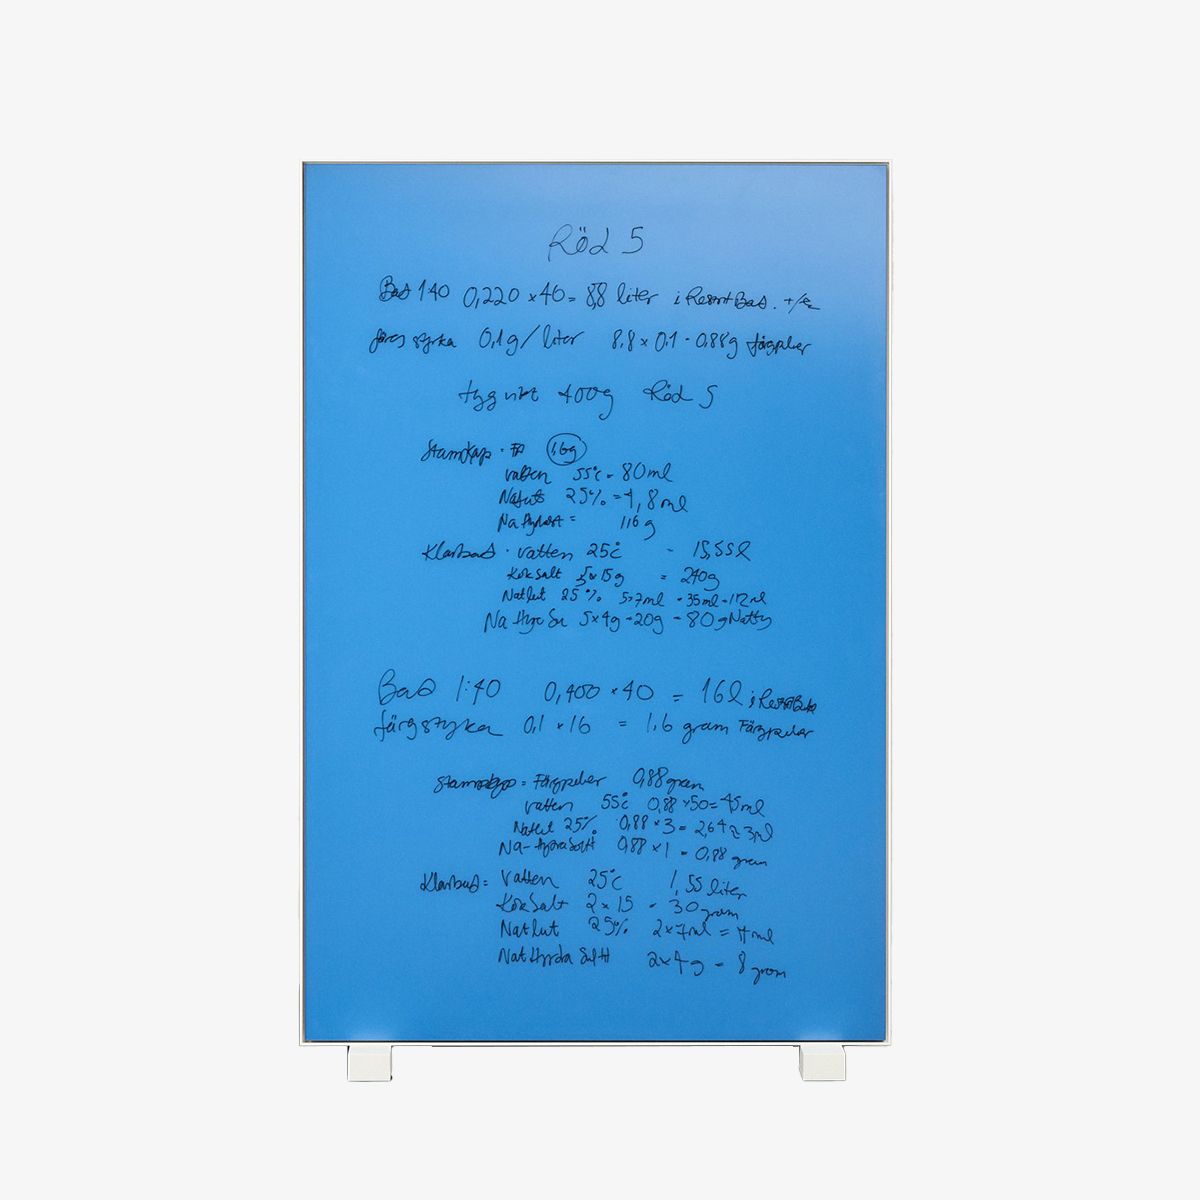 Röd 5
Bad 1:40 0,220 × 40 = 8,8 liter i Resert Bad. +/-
färg styrka 0,1g/liter 8,8 × 0,1 - 0,88g färgpulver
tyg vikt 400g Röd 5
Stamkyp · FP 1,6g
vatten 55°c - 80ml
Natlut 25% = 4,8ml
Na Hydros = 1,6 g
Klarbad · vatten 25°c - 15,55l
Koksalt × 15g = 240g
Natlut 25% 5×7ml - 35ml - 112ml
Na Hydro Su 5×4g - 20g - 80g
Bad 1:40 0,400 × 40 = 16l i Resert Bad
färgstyrka 0,1 × 16 = 1,6 gram Färgpulver
Stamkyp = Färgpulver 0,88 gram
vatten 55°c 0,88 × 50 = 45ml
Natlut 25% 0,88 × 3 = 2,64 ≈ 3ml
Na-Hydrosulfit 0,88 × 1 - 0,88 gram
Klarbad = Vatten 25°c 1,55 liter
Koksalt 2 × 15 - 30 gram
Natlut 25% 2×7ml = ml
Nat Hydro Sulfit 2×4g - 8 gram